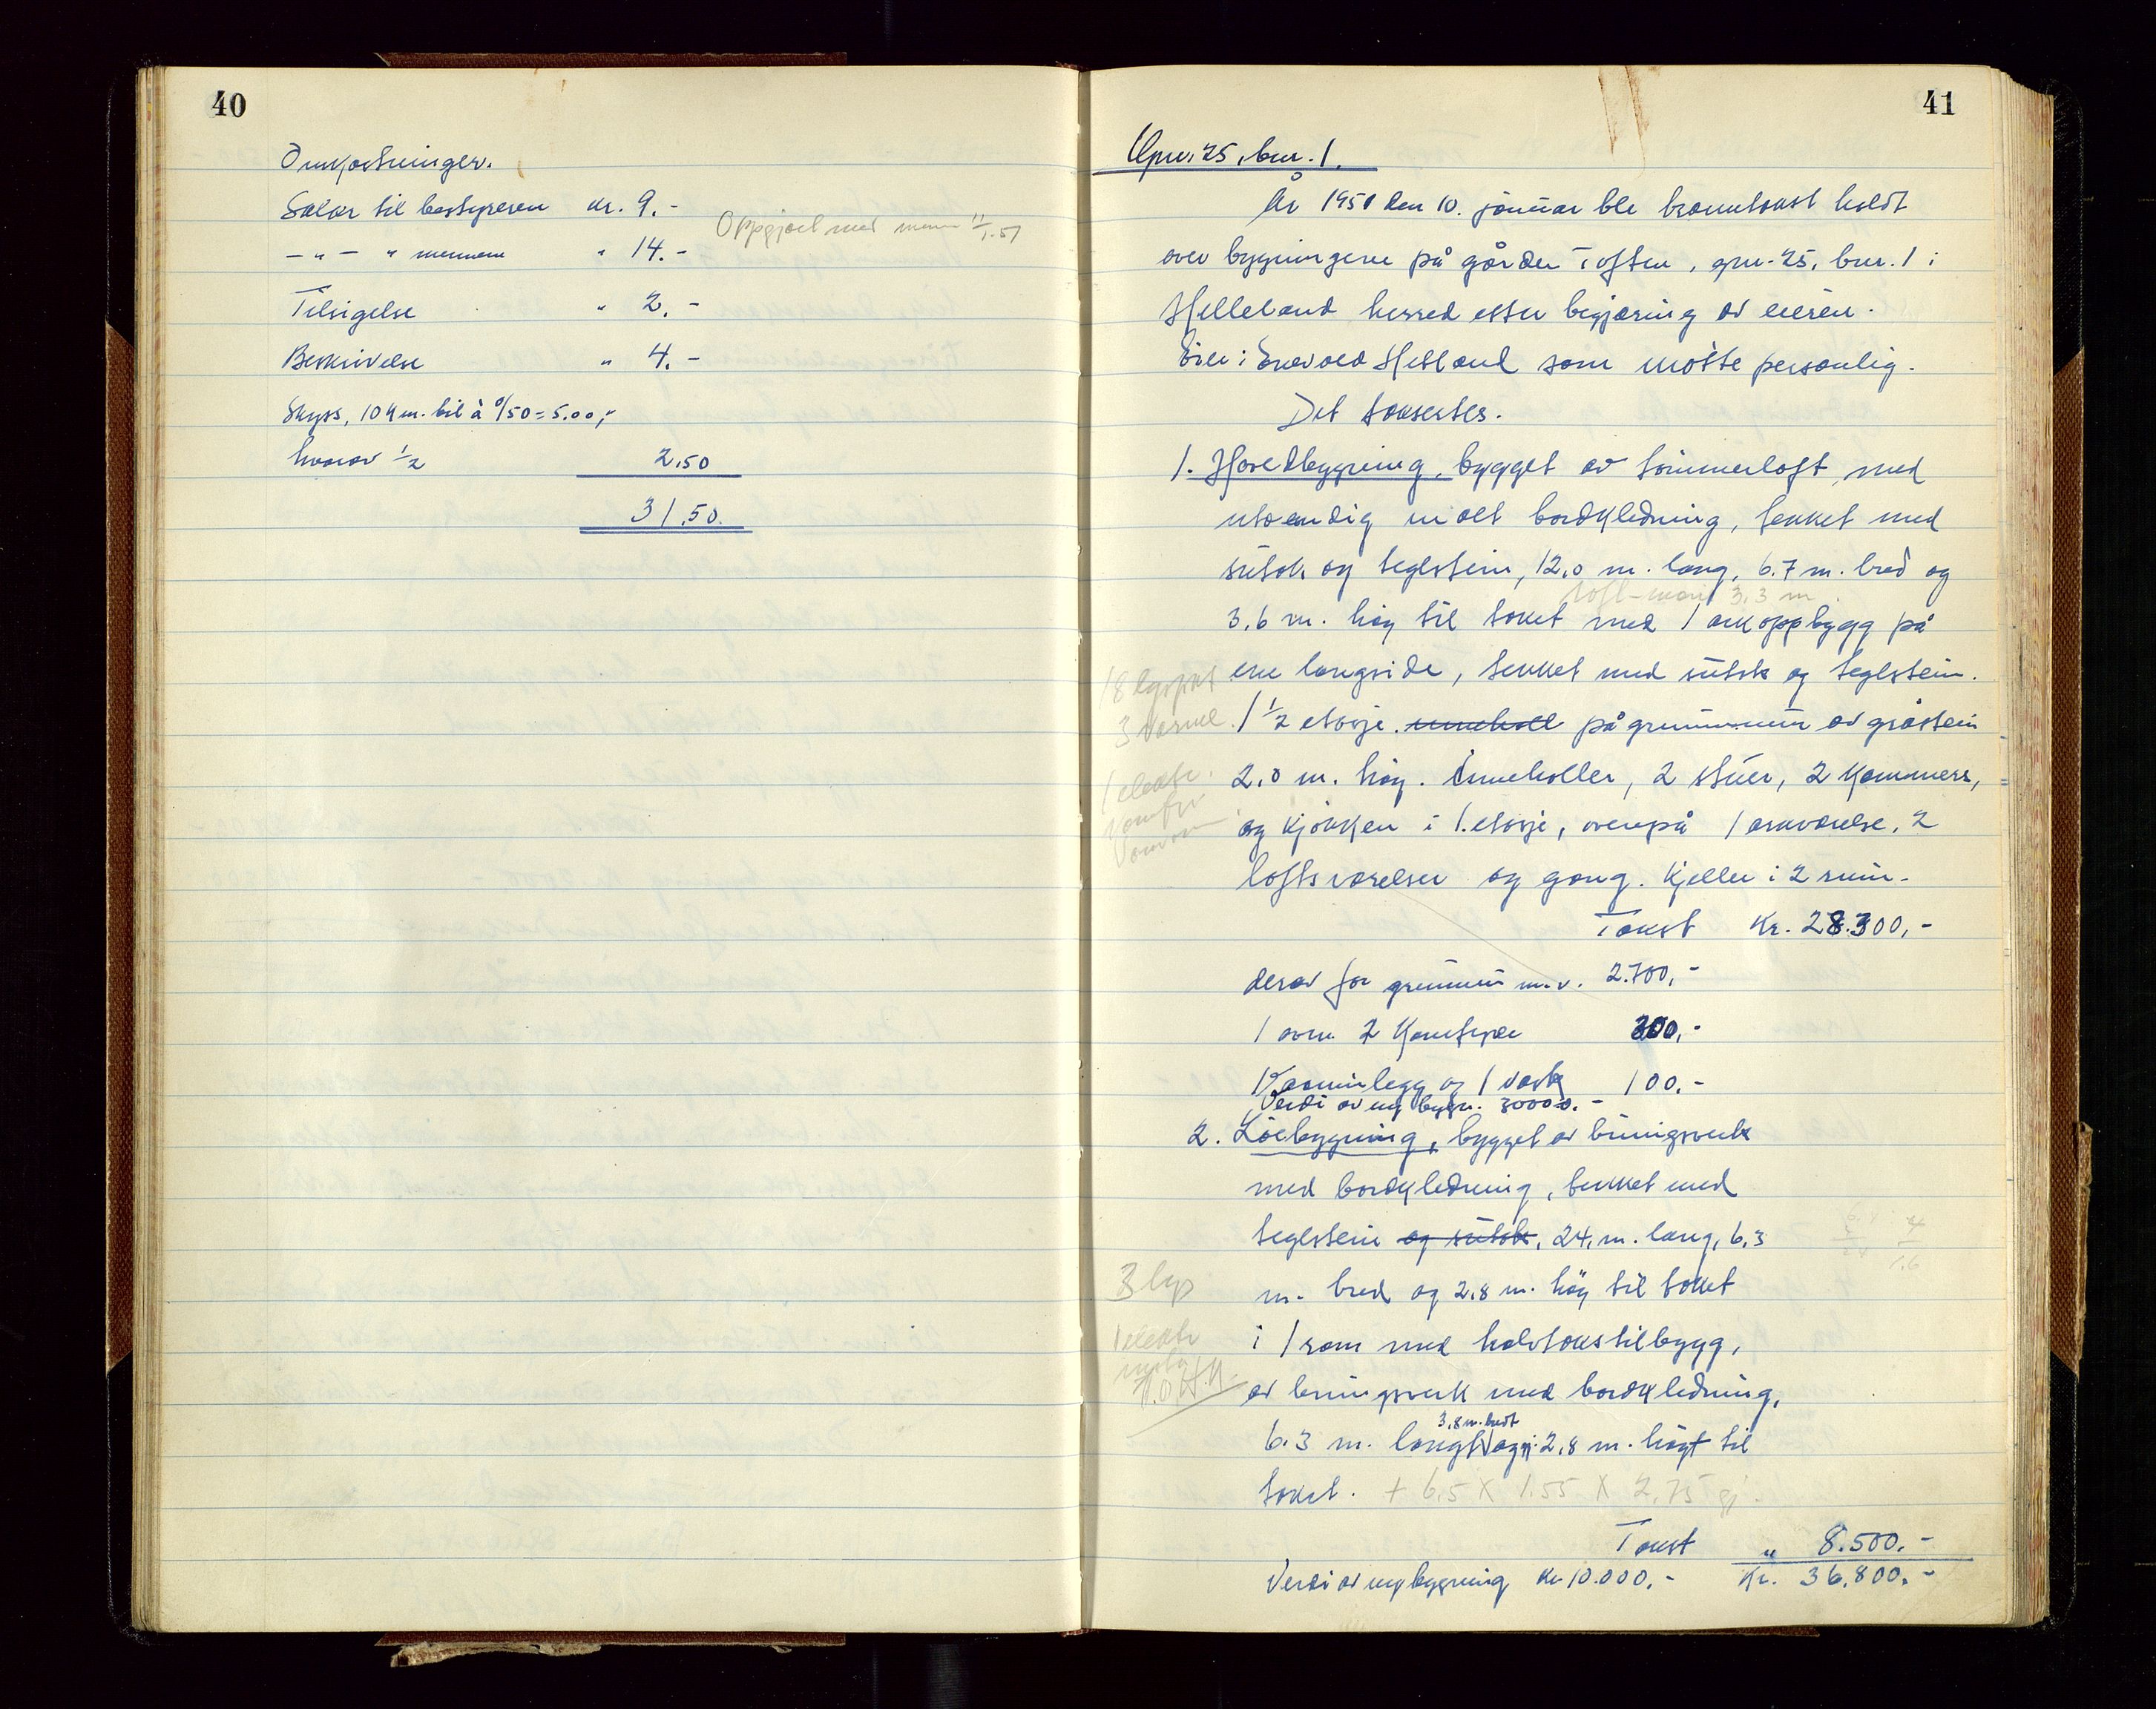 40
Omkostninger.
Salær til bestyreren kr. 9.-
- " - " mennene " 14.-
Oppgjort med menn 11/1.51
Tilsigelse " 2.-
Beskrivelse " 4.-
Skyss, 10 km. bil à 0/50 = 5.00,-
hvorav 1/2 2,50
31,50.
41
Gnr. 25, bnr. 1.
År 1951 den 10. januar ble branntakst holdt
over bygningene på gården Toften, gnr. 25, bnr. 1 i
Helleland herred etter begjæring av eieren.
Eier: Helland som møtte personlig.
Det takstertes.
1. Hovedbygning, bygget av tømmerloft, med
utvendig malt bordkledning, tekket med
sutak og teglstein, 12,0 m. lang, 6.7 m. bred og
3,3 m
3,6 m. høg til taket med 1 arkoppbygg på
ene langside, tekket med sutak og teglstein.
18 lyspkt
3 varme
1 1/2 etasje. inneholl på grunnmur av gråstein
2,0 m. høg. Inneholler, 2 stuer, 2 kammers,
1 elektr.
og kjøkken i 1. etasje, ovenpå 1 arkværelse, 2
loftsværelser og gang. Kjeller i 2 rum.
Takst Kr. 28.300,-
derav for grunnmur m.v. 2.700,-
1 ovn 2 komfyrer 300,-
Vanninlegg og 1 vask 100.-
Verdi av ny bygn. 30000.-
2. Løebygning, bygget av bindingsverk
med bordkledning, tekket med
teglstein og sutak, 24, m. lang, 6,3
3 lys
m. bred og 2,8 m. høg til taket
1 elektr
i 1 rom med halvtakstilbygg,
av bindingsverk med bordkledning,
3,8 m. bredt
6.3 m. langt og 2,8 m. høgt til
taket. + 6,5 X 1.55 X 2,75 gj.
Takst " 8.500.-
Verdi av ny bygning Kr 10.000,- Kr. 36,800.-